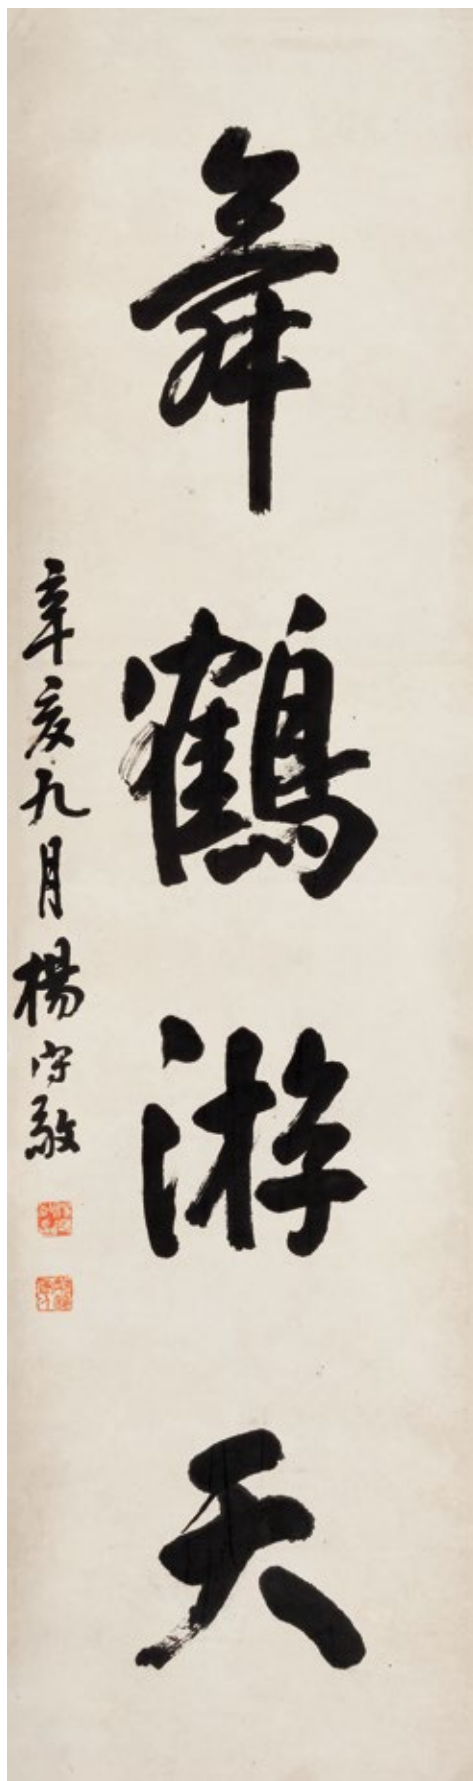 舞鶴游天
辛亥九月楊守敬